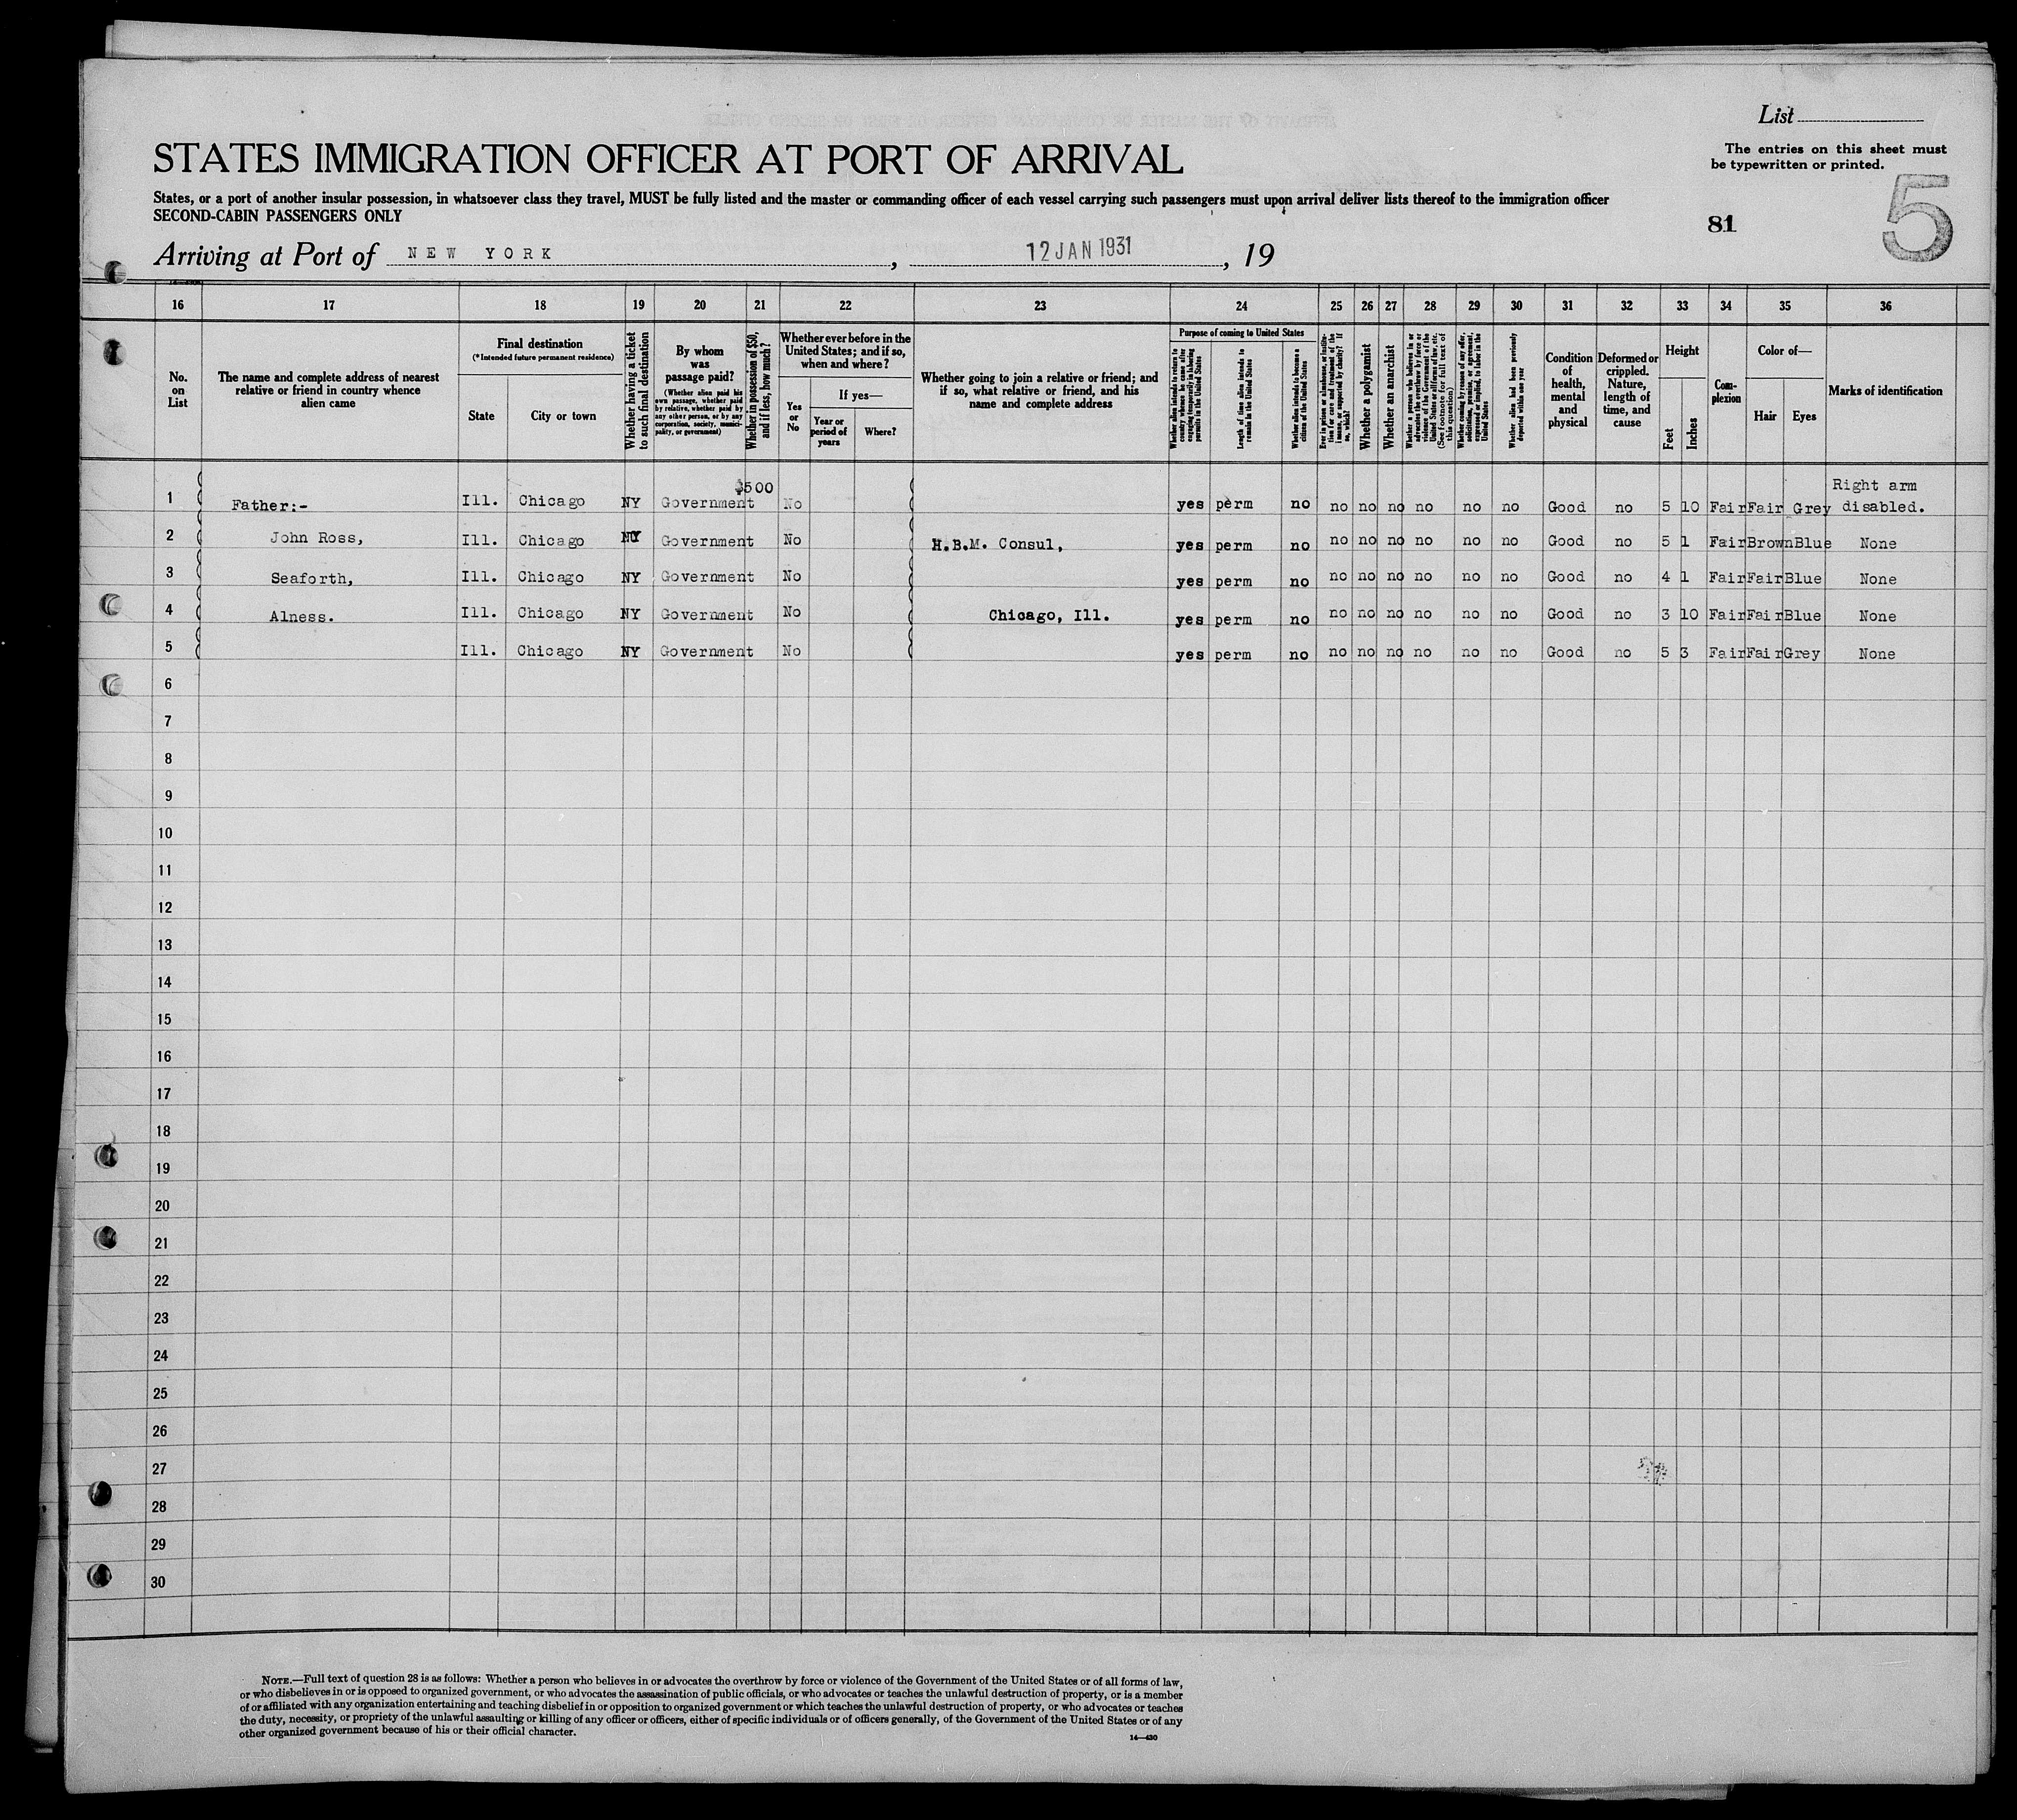 List
The entries on this sheet must
be typewritten or printed.
STATES IMMIGRATION OFFICER AT PORT OF ARRIVAL
States, or a port of another insular possession, in whatsoever class they travel, MUST be fully listed and the master or commanding officer of each vessel carrying such passengers must upon arrival deliver lists thereof to the immigration officer
SECOND-CABIN PASSENGERS ONLY
81
5
Arriving at Port of NEW YORK, 12 JAN 1931, 19
16 17 18 19 20 21 22 23 24 25 26 27 28 29 30 31 32 33 34 35 36
No.
on
List
The name and complete address of nearest
relative or friend in country whence
alien came
Final destination
(*Intended future permanent residence)
State
City or town
Whether having a ticket
to such final destination
By whom
was
passage paid?
(Whether alien paid his
own passage, whether paid
by relative, whether paid by
any other person, or by any
corporation, society, munici-
pality, or government)
Whether in possession of $50,
and if less, how much?
Whether ever before in the
United States; and if so,
when and where?
Yes
or
No
If yes—
Year or
period of
years
Where?
Whether going to join a relative or friend; and
if so, what relative or friend, and his
name and complete address
Purpose of coming to United States
Whether alien intends to return to
country whence he came after
engaging temporarily in laboring
pursuits in the United States
Length of time alien intends to
remain in the United States
Whether alien intends to become a
citizen of the United States
Ever in prison or almshouse, or institu-
tion for care and treatment of the
insane, or supported by charity? If
so, which?
Whether a polygamist
Whether an anarchist
Whether a person who believes in or
advocates the overthrow by force or
violence of the Government of the
United States or all forms of law, etc.
(See footnote for full text of
this question)
Whether coming by reason of any offer,
solicitation, promise, or agreement,
expressed or implied, to labor in the
United States
Whether alien had been previously
deported within one year
Condition
of
health,
mental
and
physical
Deformed or
crippled.
Nature,
length of
time, and
cause
Height
Feet
Inches
Com-
plexion
Color of—
Hair
Eyes
Marks of identification
1 Father:- Ill. Chicago NY Government $500 No yes perm no no no no no no no Good no 5 10 Fair Fair Grey Right arm
disabled.
2 John Ross, Ill. Chicago NY Government No H.B.M. Consul, yes perm no no no no no no no Good no 5 1 Fair Brown Blue None
3 Seaforth, Ill. Chicago NY Government No yes perm no no no no no no no Good no 4 1 Fair Fair Blue None
4 Alness. Ill. Chicago NY Government No Chicago, Ill. yes perm no no no no no no no Good no 3 10 Fair Fair Blue None
5 Ill. Chicago NY Government No yes perm no no no no no no no Good no 5 3 Fair Fair Grey None
6
7
8
9
10
11
12
13
14
15
16
17
18
19
20
21
22
23
24
25
26
27
28
29
30
NOTE.—Full text of question 28 is as follows: Whether a person who believes in or advocates the overthrow by force or violence of the Government of the United States or of all forms of law,
or who disbelieves in or is opposed to organized government, or who advocates the assassination of public officials, or who advocates or teaches the unlawful destruction of property, or is a member
of or affiliated with any organization entertaining and teaching disbelief in or opposition to organized government or which teaches the unlawful destruction of property, or who advocates or teaches
the duty, necessity, or propriety of the unlawful assaulting or killing of any officer or officers, either of specific individuals or of officers generally, of the Government of the United States or of any
other organized government because of his or their official character.
14—430